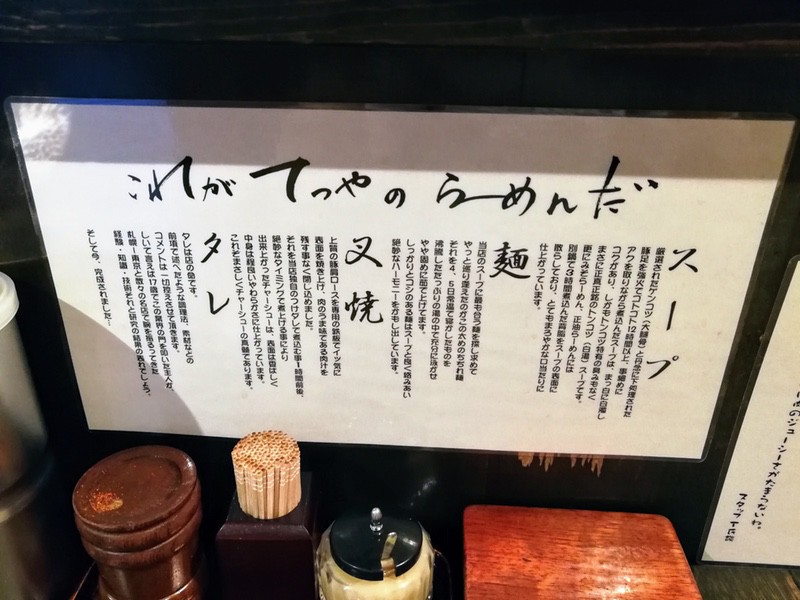 これが てつやの らーめんだ
スープ
厳選されたゲンコツ(大腿骨)と丹念に下処理された
豚足を強火でコトコト12時間以上、事細めに
アクを取りながら煮込んだスープは、まっ白に白濁し
コクがあり、しかもトンコツ特有の臭みもなく
まさに正真正銘のトンコツ(白湯)スープです。
更にみそらーめん、正油らーめんには
別鍋で3時間煮込んだ背脂をスープの表面に
散らしており、とてもまろやかな口当たりに
仕上がっています。
麺
当店のスープに最も合う麺を探し求めて
やっと巡り逢えたのがこの太めのちぢれ麺
それを4、5日常温で寝かしたものを
沸騰したたっぷりの湯の中で充分に泳がせ
やや固めに茹で上げてます。
しっかりとコシのある麺はスープと良く絡みあい
絶妙なハーモニーをかもし出しています。
叉焼
上質の豚肩ロースを専用の鉄板でイッ気に
表面を焼き上げ、肉のうま味である肉汁を
残す事なく閉じ込めました。
それを当店独自のつけタレで煮込む事1時間前後、
絶妙なタイミングで煮上げる事により
出来上がったチャーシューは、表面は香ばしく
中身は程良いやわらかさに仕上がっています。
これぞまさしくチャーシューの真髄であります。
タレ
タレは店の命です。
前項で述べたような調理法、素材などの
コメントは一切控えさせて頂きます。
しいて言えば17歳でこの業界の門を叩いた主人が、
札幌・東京と数々の名店で腕を振るってきた
経験・知識・技術それと研究の結果の表れでしょう。
そして今、完成されました…
のジューシーさがたまらないわ。
スタッフ